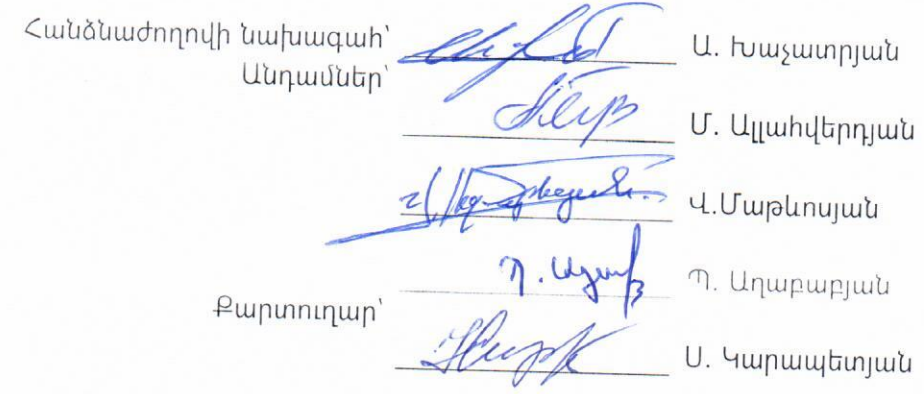 Հանձնաժողովի նախագահ՝ Ա. Խաչատրյան
Անդամներ՝
Մ. Ալլահվերդյան
Վ.Մաթևոսյան
Պ. Աղաբաբյան
Քարտուղար՝
Ս. Կարապետյան